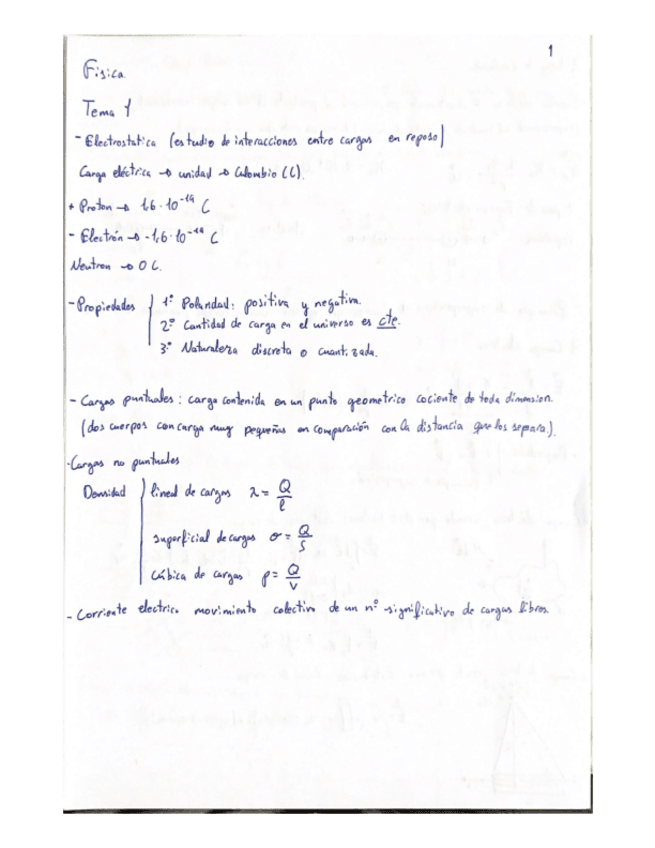 1
Física.
Tema 1
- Electrostatica (estudio de interacciones entre cargas en reposo)
Carga eléctrica → unidad → Culombio (C).
+ Proton → 1,6 · 10⁻¹⁹ C
- Electrón → -1,6 · 10⁻¹⁹ C
Neutron → 0 C.
- Propiedades 1º Polaridad: positiva y negativa.
2º Cantidad de carga en el universo es cte.
3º Naturaleza discreta o cuantizada.
- Cargas puntuales: carga contenida en un punto geometrico cociente de toda dimension.
(dos cuerpos con carga muy pequeñas en comparación con la distancia que los separa).
- Cargas no puntuales
Densidad lineal de cargas λ = Q/l
superficial de cargas σ = Q/S
cúbica de cargas ρ = Q/V
- Corriente electrica movimiento colectivo de un nº significativo de cargas libres.